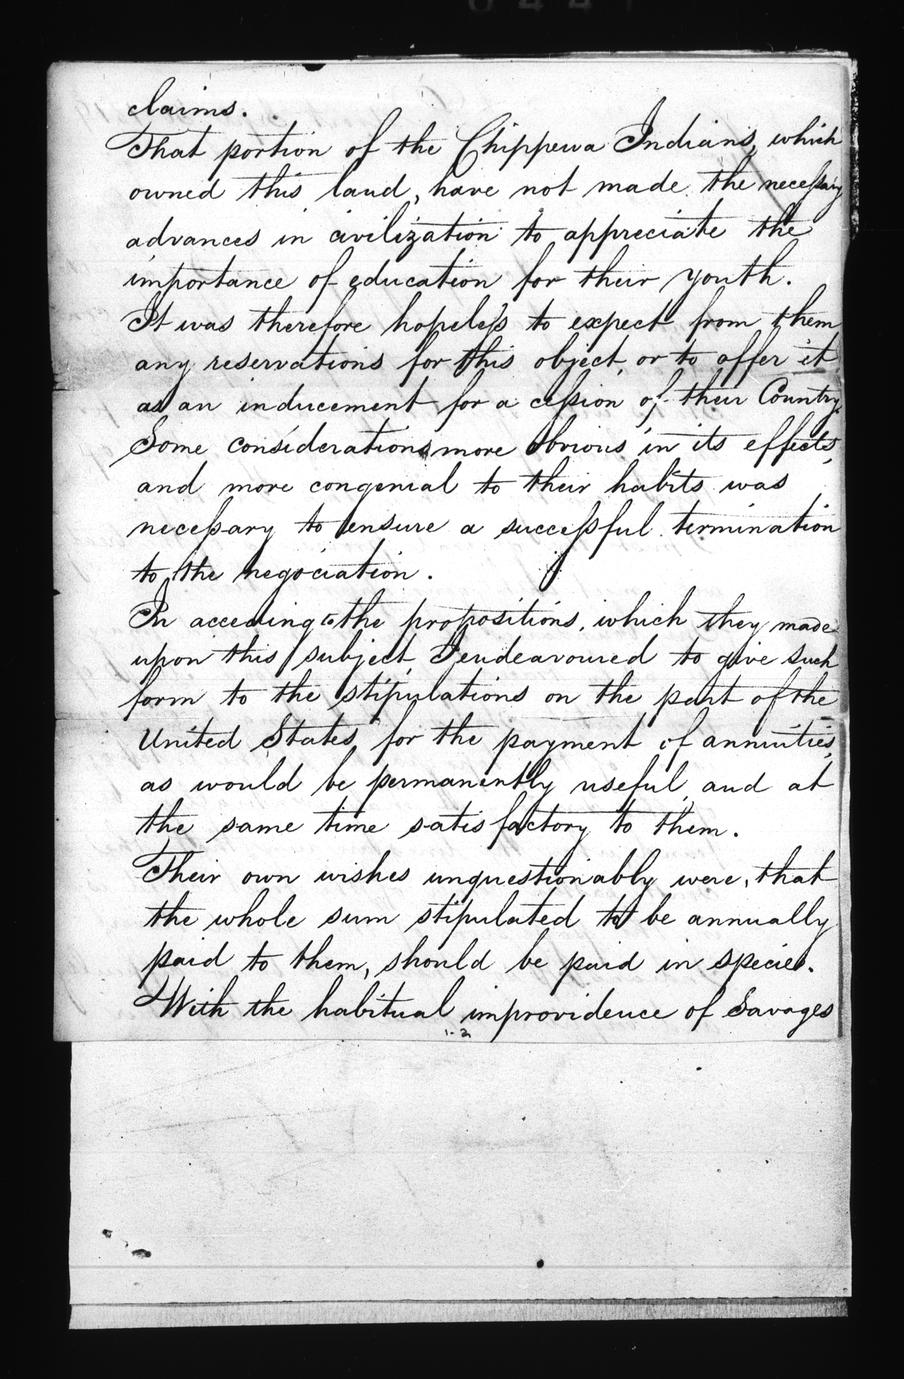 claims.
That portion of the Chippewa Indians, which
owned this land, have not made the necessary
advances in civilization to appreciate the
importance of education for their youth.
It was therefore hopeless to expect from them
any reservations for this object, or to offer it
as an inducement for a cession of their Country.
Some considerations more obvious in its effects,
and more congenial to their habits was
necessary to ensure a successful termination
to the negociation.
In acceeding to the propositions, which they made
upon this subject, I endeavoured to give such
form to the stipulations on the part of the
United States, for the payment of annuities,
as would be permanently useful, and at
the same time satisfactory to them.
Their own wishes unquestionably were, that
the whole sum stipulated to be annually
paid to them, should be paid in specie.
With the habitual improvidence of Savages
1-2